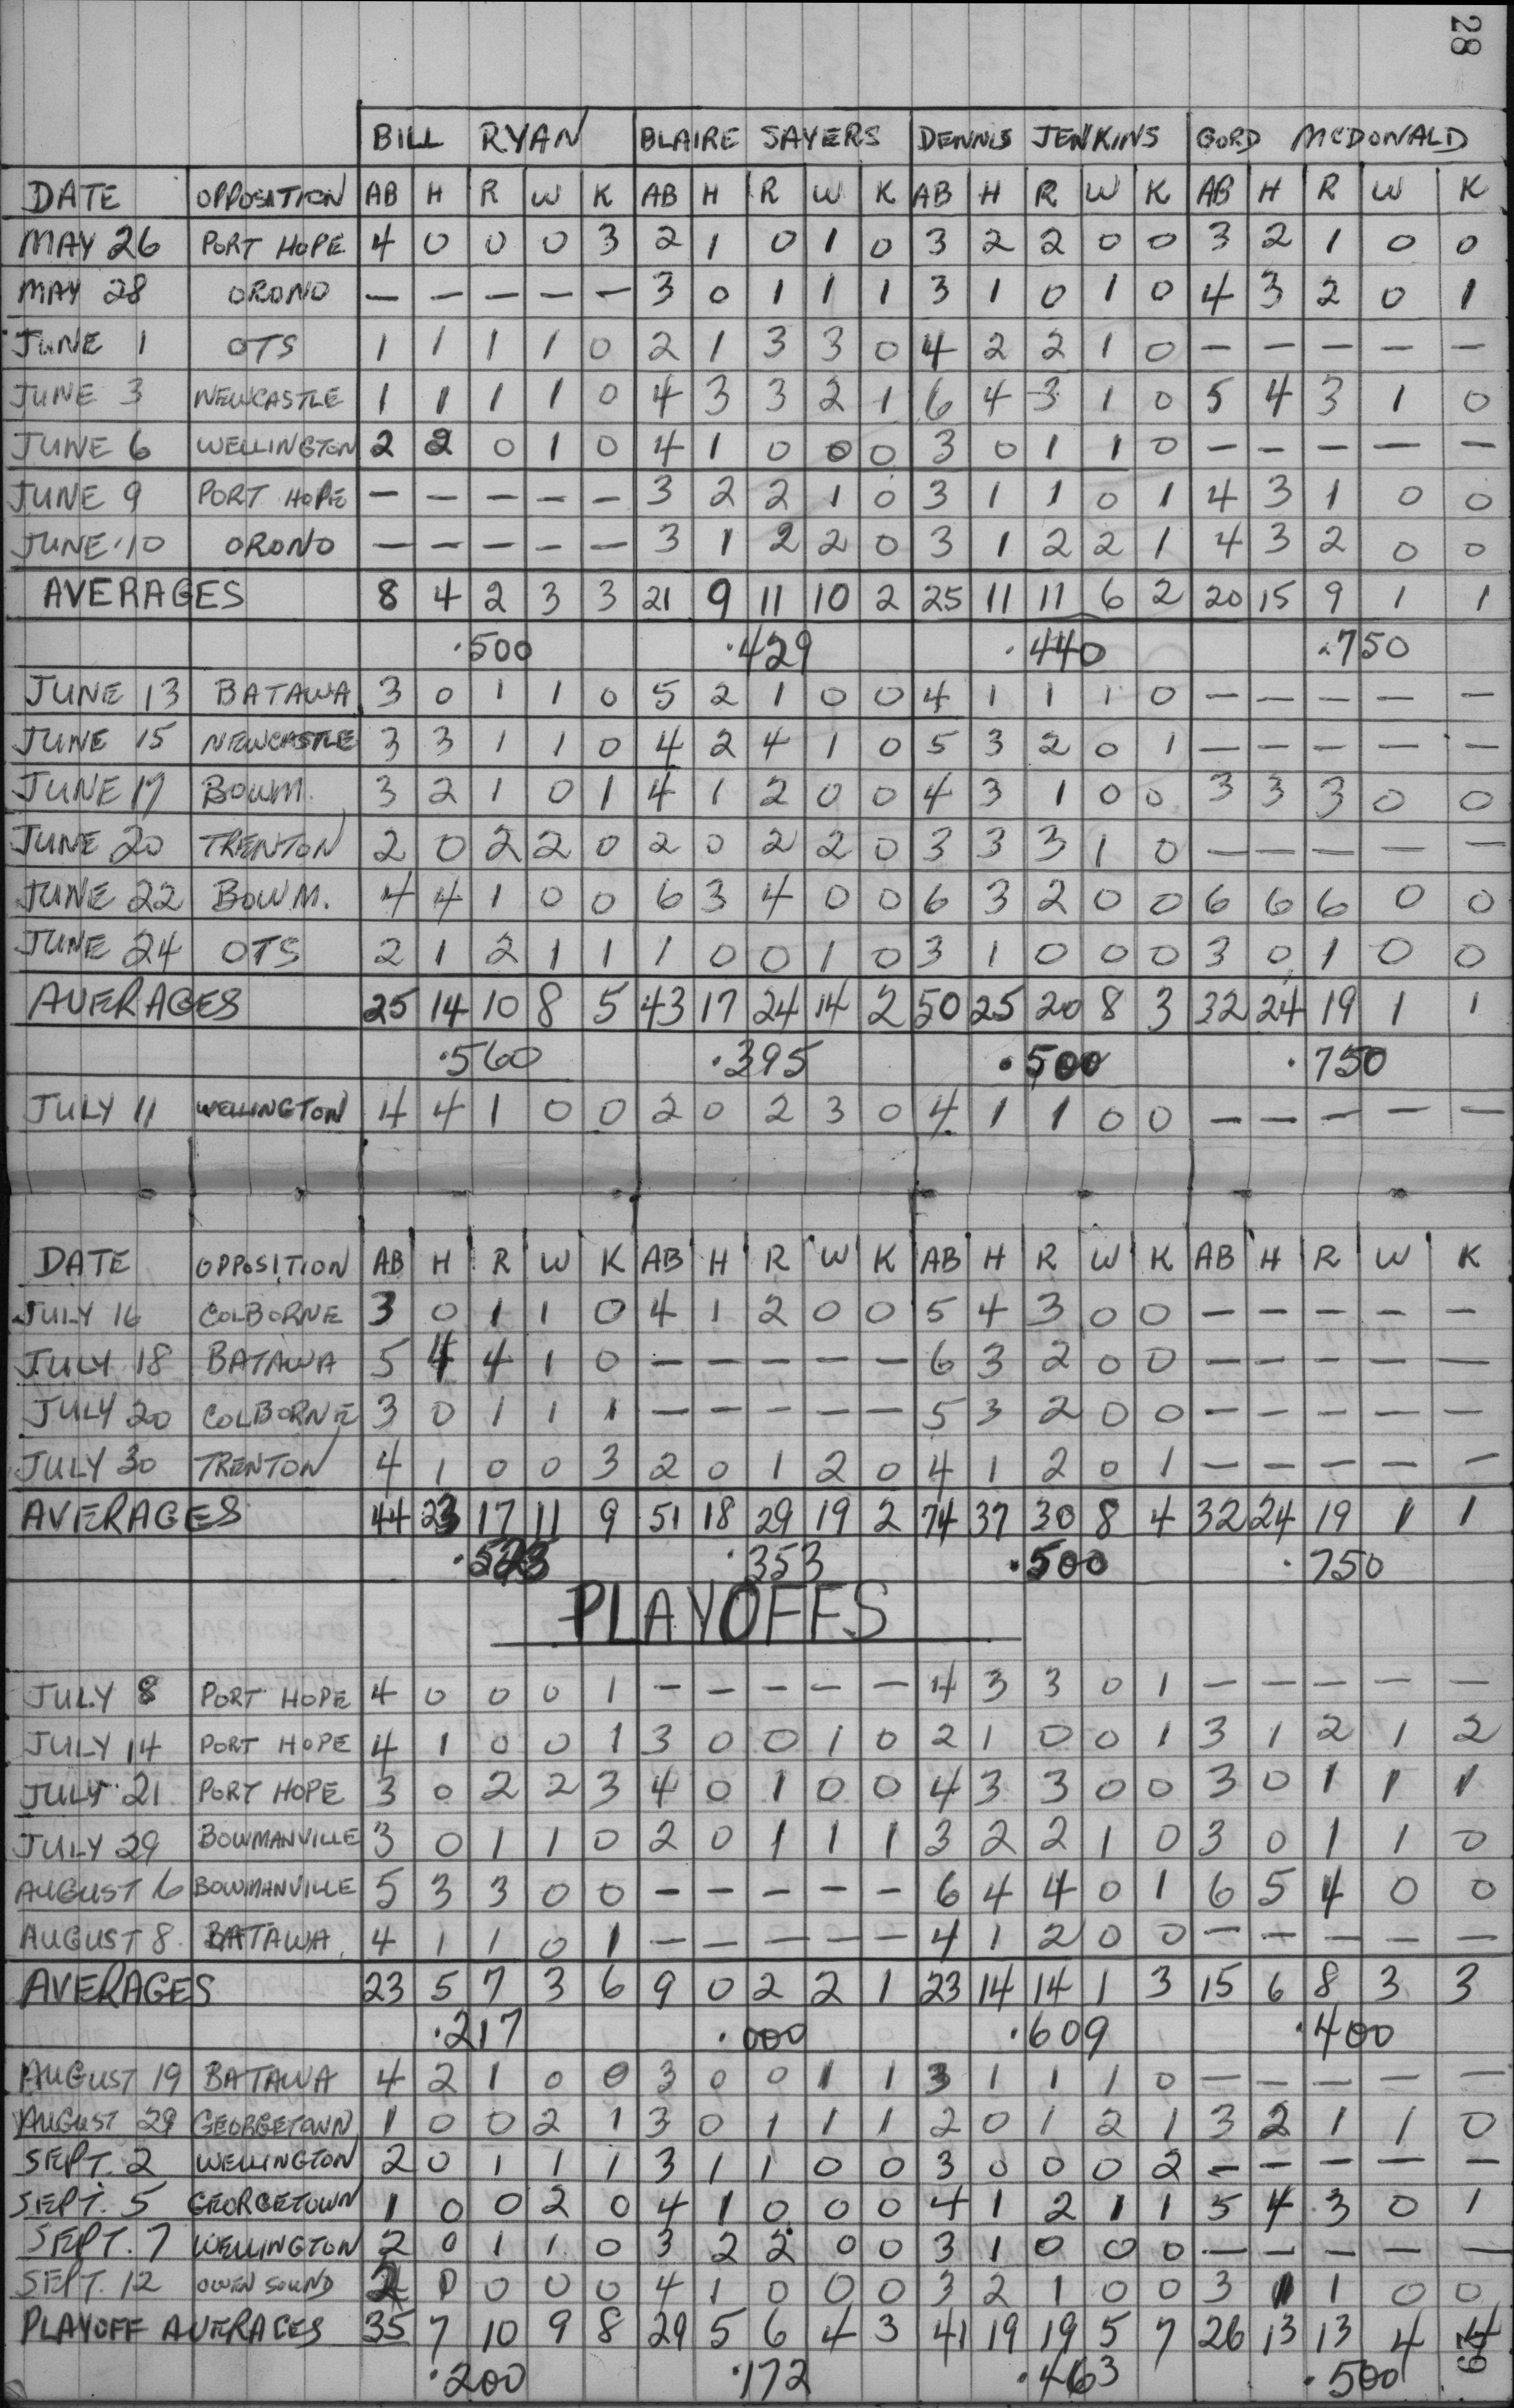 28
BILL RYAN BLAIRE SAYERS DENNIS JENKINS GORD MCDONALD
DATE OPPOSITION AB H R W K AB H R W K AB H R W K AB H R W K
MAY 26 PORT HOPE 4 0 0 0 3 2 1 0 1 0 3 2 2 0 0 3 2 1 0 0
MAY 28 ORONO — — — — — 3 0 1 1 1 3 1 0 1 0 4 3 2 0 1
JUNE 1 OTS 1 1 1 1 0 2 1 3 3 0 4 2 2 1 0 — — — — —
JUNE 3 NEWCASTLE 1 1 1 1 0 4 3 3 2 1 6 4 3 1 0 5 4 3 1 0
JUNE 6 WELLINGTON 2 2 0 1 0 4 1 0 0 0 3 0 1 1 0 — — — — —
JUNE 9 PORT HOPE — — — — — 3 2 2 1 0 3 1 1 0 1 4 3 1 0 0
JUNE 10 ORONO — — — — — 3 1 2 2 0 3 1 2 2 1 4 3 2 0 0
AVERAGES 8 4 2 3 3 21 9 11 10 2 25 11 11 6 2 20 15 9 1 1
.500 .429 .440 .750
JUNE 13 BATAWA 3 0 1 1 0 5 2 1 0 0 4 1 1 1 0 — — — — —
JUNE 15 NEWCASTLE 3 3 1 1 0 4 2 4 1 0 5 3 2 0 1 — — — — —
JUNE 17 BOWM. 3 2 1 0 1 4 1 2 0 0 4 3 1 0 0 3 3 3 0 0
JUNE 20 TRENTON 2 0 2 2 0 2 0 2 2 0 3 3 3 1 0 — — — — —
JUNE 22 BOWM. 4 4 1 0 0 6 3 4 0 0 6 3 2 0 0 6 6 6 0 0
JUNE 24 OTS 2 1 2 1 1 1 0 0 1 0 3 1 0 0 0 3 0 1 0 0
AVERAGES 25 14 10 8 5 43 17 24 14 2 50 25 20 8 3 32 24 19 1 1
.560 .395 .500 .750
JULY 11 WELLINGTON 4 4 1 0 0 2 0 2 3 0 4 1 1 0 0 — — — — —
DATE OPPOSITION AB H R W K AB H R W K AB H R W K AB H R W K
JULY 16 COLBORNE 3 0 1 1 0 4 1 2 0 0 5 4 3 0 0 — — — — —
JULY 18 BATAWA 5 4 4 1 0 — — — — — 6 3 2 0 0 — — — — —
JULY 20 COLBORNE 3 0 1 1 1 — — — — — 5 3 2 0 0 — — — — —
JULY 30 TRENTON 4 1 0 0 3 2 0 1 2 0 4 1 2 0 1 — — — — —
AVERAGES 44 23 17 11 9 51 18 29 19 2 74 37 30 8 4 32 24 19 1 1
.523 .353 .500 .750
PLAYOFFS
JULY 8 PORT HOPE 4 0 0 0 1 — — — — — 4 3 3 0 1 — — — — —
JULY 14 PORT HOPE 4 1 0 0 1 3 0 0 1 0 2 1 0 0 1 3 1 2 1 2
JULY 21 PORT HOPE 3 0 2 2 3 4 0 1 0 0 4 3 3 0 0 3 0 1 1 1
JULY 29 BOWMANVILLE 3 0 1 1 0 2 0 1 1 1 3 2 2 1 0 3 0 1 1 0
AUGUST 6 BOWMANVILLE 5 3 3 0 0 — — — — — 6 4 4 0 1 6 5 4 0 0
AUGUST 8 BATAWA 4 1 1 0 1 — — — — — 4 1 2 0 0 — — — — —
AVERAGES 23 5 7 3 6 9 0 2 2 1 23 14 14 1 3 15 6 8 3 3
.217 .000 .609 .400
AUGUST 19 BATAWA 4 2 1 0 0 3 0 0 1 1 3 1 1 1 0 — — — — —
AUGUST 29 GEORGETOWN 1 0 0 2 1 3 0 1 1 1 2 0 1 2 1 3 2 1 1 0
SEPT. 2 WELLINGTON 2 0 1 1 1 3 1 1 0 0 3 0 0 0 2 — — — — —
SEPT. 5 GEORGETOWN 1 0 0 2 0 4 1 0 0 0 4 1 2 1 1 5 4 3 0 1
SEPT. 7 WELLINGTON 2 0 1 1 0 3 2 2 0 0 3 1 0 0 0 — — — — —
SEPT. 12 OWEN SOUND 2 0 0 0 0 4 1 0 0 0 3 2 1 0 0 3 1 1 0 0
PLAYOFF AVERAGES 35 7 10 9 8 29 5 6 4 3 41 19 19 5 7 26 13 13 4 4
.200 .172 .463 .500